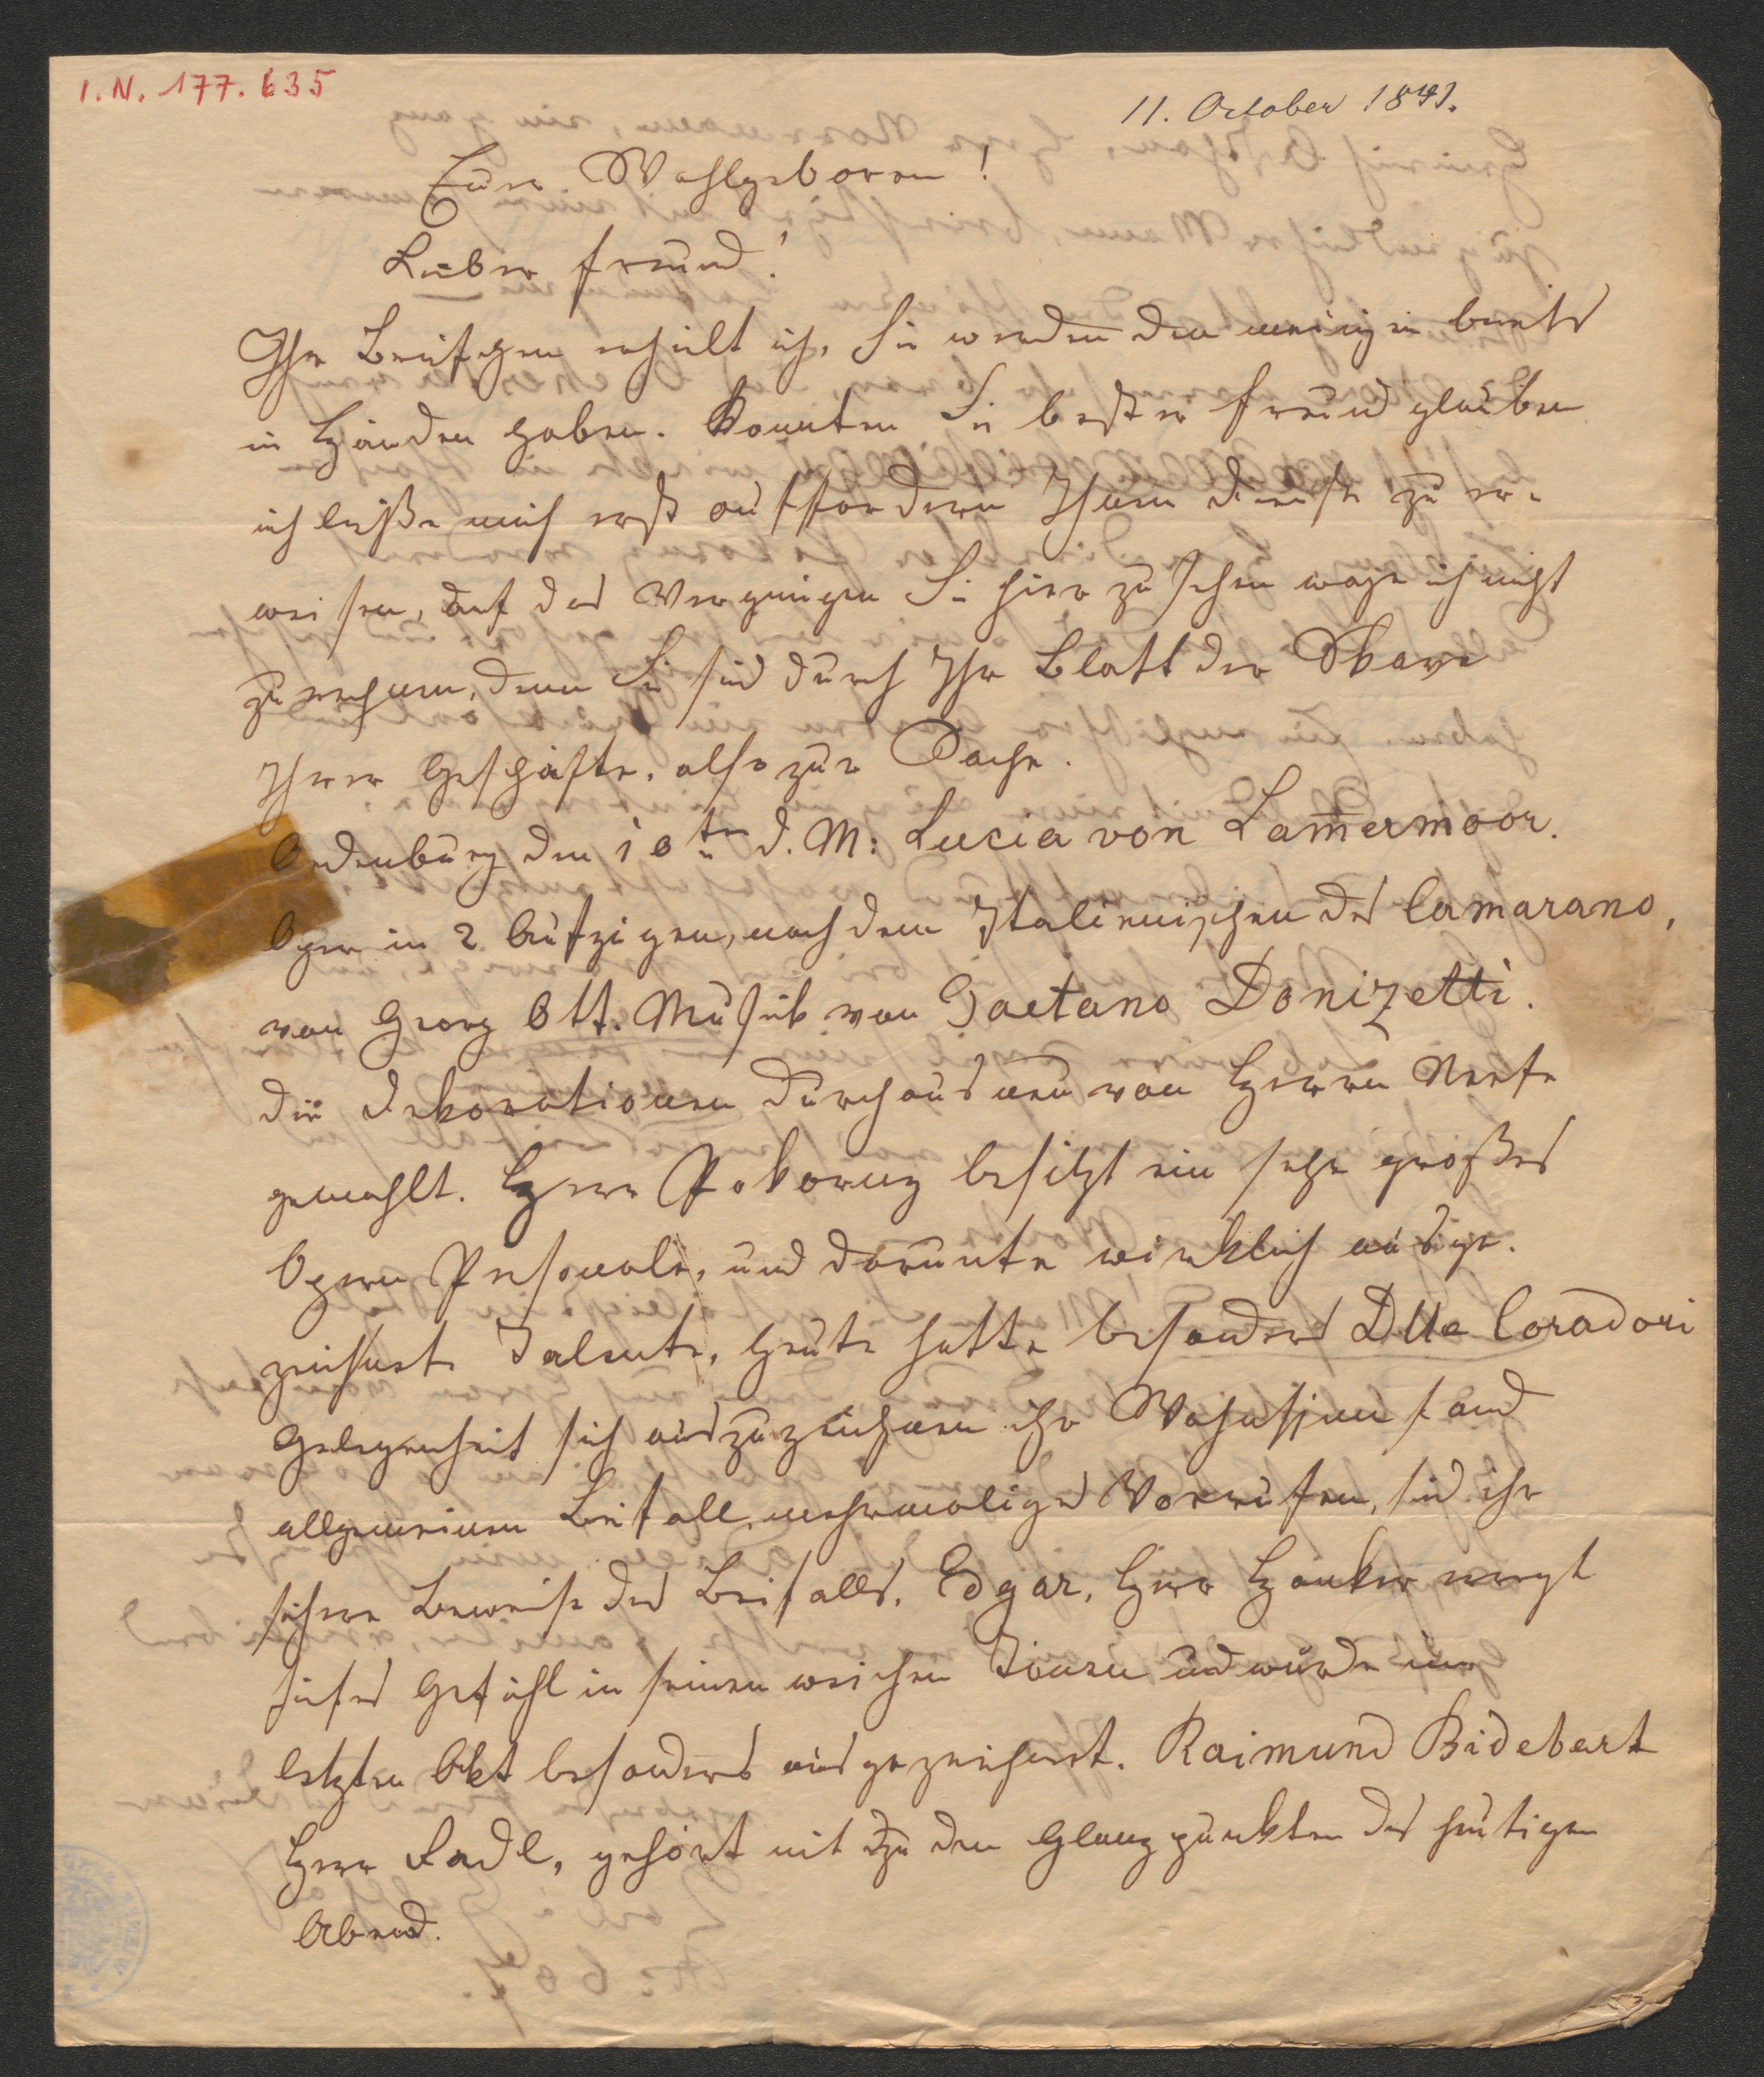 I. N. 177.635
11. October 1841.
Euer Wohlgeboren!
Lieber Freund!
Ihr Briefchen erhielt ich, Sie werden den meinigen bereits
in Händen haben. Konnten Sie bester Freund glauben
ich ließe mich erst auffordern Ihnen Dienste zu er-
weisen, auf das Vergnügen Sie hier zu sehen wage ich nicht
zu rechnen, denn Sie sind durch Ihr Blatt der Sklave
Ihrer Geschäfte, also zur Sache.
Oedenburg den 10ten d. M: Lucia von Lam̄ermoor.
Oper in 2 Aufzügen, nach dem Italienischen des Camarano,
von Georg Ott. Musik von Gaetano Donizetti.
die Dekorationen durchaus neu von Herrn Neefe
gemahlt. Herr Pokorny besitzt ein sehr großes
Opern Personale, und darunter wirklich ausge-
zeichnete Talente, heute hatte besonders Dlle Coradori
Gelegenheit sich auszuzeichnen ihr Wahnsinn fand
allgemeinen Beifall, mehrmaliges Vorrufen, sind ihr
sichere Beweise des Beifalls. Edgar, Herr Hanker
tiefes Gefühl in seinen weichen Tönen und wurde im
letzten Akt besonders ausgezeichnet. Raimund Bidebert
Herr Radl, gehört mit zu den Glanzpunkten des heutigen
Abend.